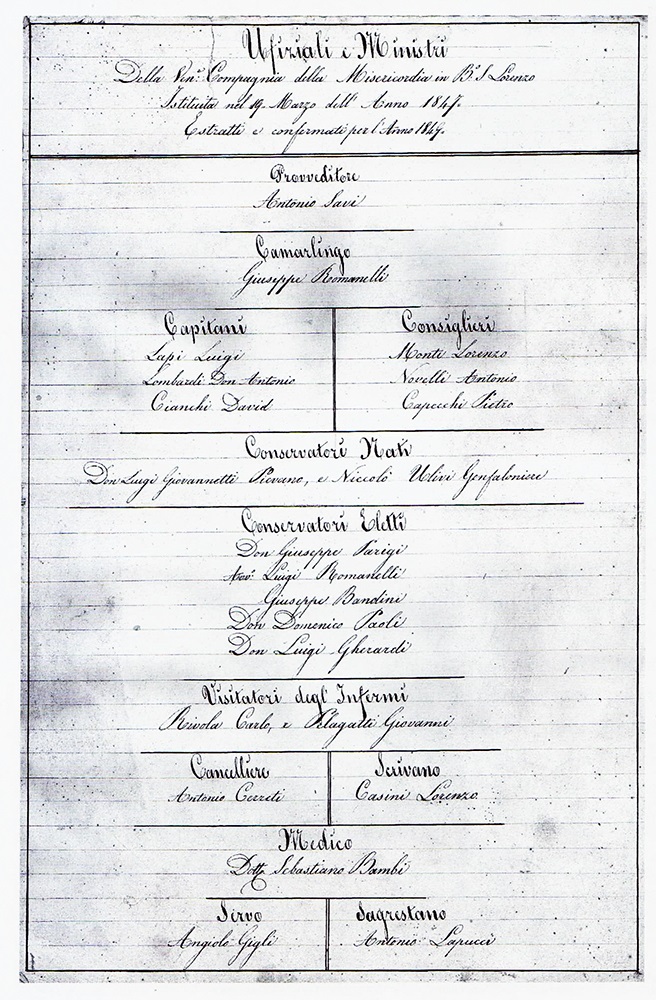 Ufiziali e Ministri
Della Ven. Compagnia della Misericordia in B.º S Lorenzo
Istituita nel 19. Marzo dell' Anno 1847.
Estratti e confermati per l'Anno 1849.
Provveditore
Antonio Savi
Camarlingo
Giuseppe Romanelli
Capitani
Lapi Luigi
Lombardi Don Antonio
Cianchi David
Consiglieri
Monti Lorenzo
Novelli Antonio
Capecchi Pietro
Conservatori Nati
Don Luigi Giovannetti Pievano, e Niccolò Ulivi Gonfaloniere
Conservatori Eletti
Don Giuseppe Parigi
Avv.º Luigi Romanelli
Giuseppe Bandini
Don Domenico Paoli
Don Luigi Gherardi
Visitatori degl' Infermi
Rivola Carlo, e Pelagatti Giovanni
Cancelliere
Antonio Cerreti
Scrivano
Casini Lorenzo.
Medico
Dott. Sebastiano Bambi
Servo
Angiolo Gigli
Sagrestano
Antonio Lapucci